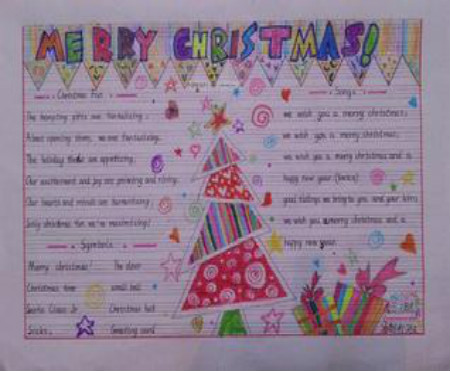 MERRY CHRISTMAS!
Christmas Fun
The tempting gifts are tantalising;
About opening them, we are fantasising,
The holiday are appetizing;
Our excitement and joy are and rising;
Our hearts and minds are
Jolly christmas fun we're maximizing!
Symbols
Merry christmas! The deer
Christmas tree small bell
Santa Claus Jr. Christmas hat
Socks, Greeting card
Songs
we wish you a merry christmas;
we wish you a merry christmas;
we wish you a merry christmas and a
happy new year (twice)
good tidings we bring to you and your kin;
we wish you a merry christmas and a
happy new year.